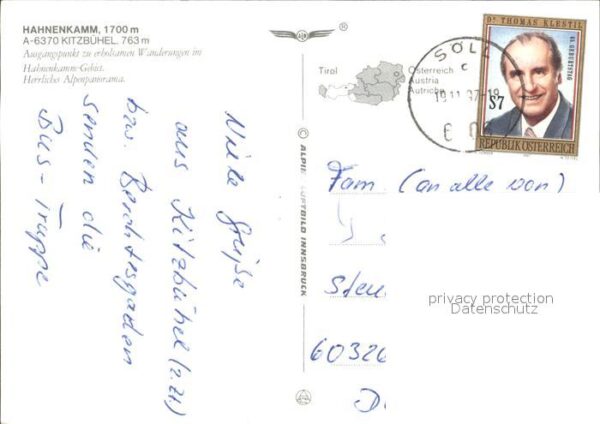 HAHNENKAMM, 1700 m
A-6370 KITZBÜHEL, 763 m
Ausgangspunkt zu erholsamen Wanderungen im
Hahnenkamm-Gebiet.
Herrliches Alpenpanorama.
Viele Grüße
aus Kitzbühel (z.Zt.)
bzw. Berchtesgaden
senden die
Bus-Truppe
Tirol
Österreich
Austria
Autriche
© ALPINE LUFTBILD INNSBRUCK
SÖLL
c
19.11.97-19
Dr. THOMAS KLESTIL
65. GEBURTSTAG
S7
REPUBLIK ÖSTERREICH
Fam. (an alle von)
60326
privacy protection
Datenschutz